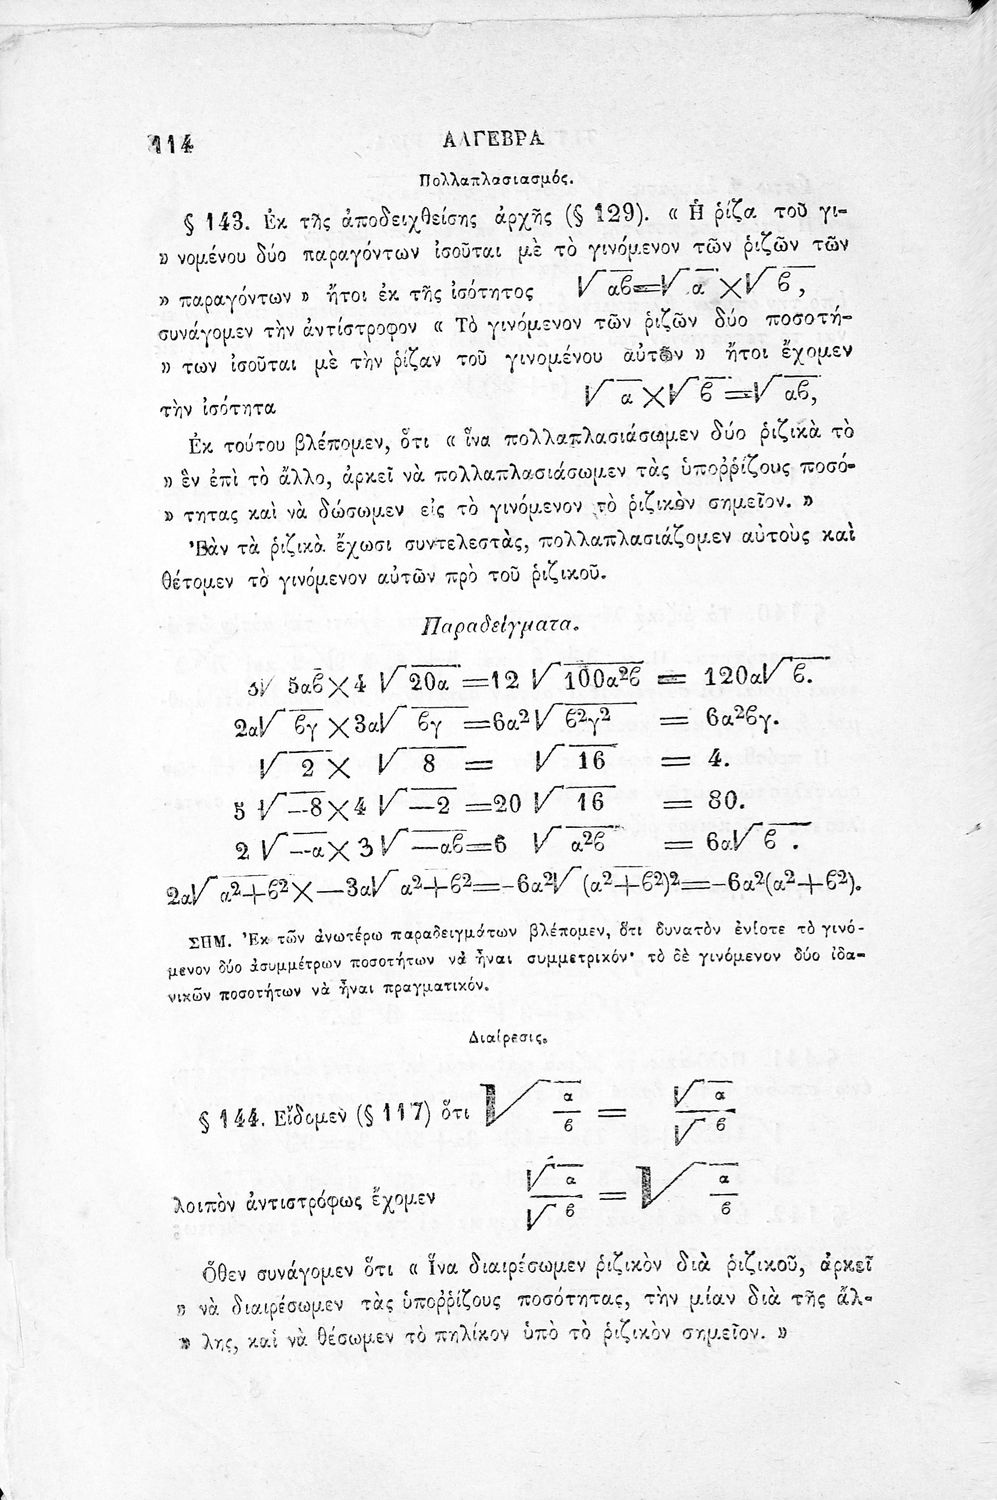 114 ΑΛΓΕΒΡΑ
Πολλαπλασιασμός.
§ 143. Ἐκ τῆς ἀποδειχθείσης ἀρχῆς (§ 129). « Ἡ ῥίζα τοῦ γι-
» νομένου δύο παραγόντων ἰσοῦται μὲ τὸ γινόμενον τῶν ῥιζῶν τῶν
» παραγόντων » ἤτοι ἐκ τῆς ἰσότητος √αϐ=√α×√ϐ,
συνάγομεν τὴν ἀντίστροφον « Τὸ γινόμενον τῶν ῥιζῶν δύο ποσοτή-
» των ἰσοῦται μὲ τὴν ῥίζαν τοῦ γινομένου αὐτῶν » ἤτοι ἔχομεν
τὴν ἰσότητα √α×√ϐ=√αϐ,
Ἐκ τούτου βλέπομεν, ὅτι « ἵνα πολλαπλασιάσωμεν δύο ῥιζικὰ τὸ
» ἓν ἐπὶ τὸ ἄλλο, ἀρκεῖ νὰ πολλαπλασιάσωμεν τὰς ὑποῤῥίζους ποσό-
» τητας καὶ νὰ δώσωμεν εἰς τὸ γινόμενον τὸ ῥιζικὸν σημεῖον. »
Ἐὰν τὰ ῥιζικὰ ἔχωσι συντελεστὰς, πολλαπλασιάζομεν αὐτοὺς καὶ
θέτομεν τὸ γινόμενον αὐτῶν πρὸ τοῦ ῥιζικοῦ.
Παραδείγματα.
3√5αϐ×4√20α=12√100α²ϐ = 120α√ϐ.
2α√ϐγ×3α√ϐγ=6α²√ϐ²γ² = 6α²ϐγ.
√2× √8 = √16 = 4.
5√—8×4√—2=20√16 = 80.
2√—α×3√—αϐ=6 √α²ϐ = 6α√ϐ.
2α√α²+ϐ²×—3α√α²+ϐ²=-6α²√(α²+ϐ²)²=-6α²(α²+ϐ²).
ΣΗΜ. Ἐκ τῶν ἀνωτέρω παραδειγμάτων βλέπομεν, ὅτι δυνατὸν ἐνίοτε τὸ γινό-
μενον δύο ἀσυμμέτρων ποσοτήτων νὰ ᾖναι συμμετρικόν· τὸ δὲ γινόμενον δύο ἰδα-
νικῶν ποσοτήτων νὰ ᾖναι πραγματικόν.
Διαίρεσις.
§ 144. Εἴδομεν (§ 117) ὅτι √(α/ϐ) = √α/√ϐ
λοιπὸν ἀντιστρόφως ἔχομεν √α/√ϐ = √(α/ϐ)
Ὅθεν συνάγομεν ὅτι « Ἵνα διαιρέσωμεν ῥιζικὸν διὰ ῥιζικοῦ, ἀρκεῖ
» νὰ διαιρέσωμεν τὰς ὑποῤῥίζους ποσότητας, τὴν μίαν διὰ τῆς ἄλ-
» λης, καὶ νὰ θέσωμεν τὸ πηλίκον ὑπὸ τὸ ῥιζικὸν σημεῖον. »